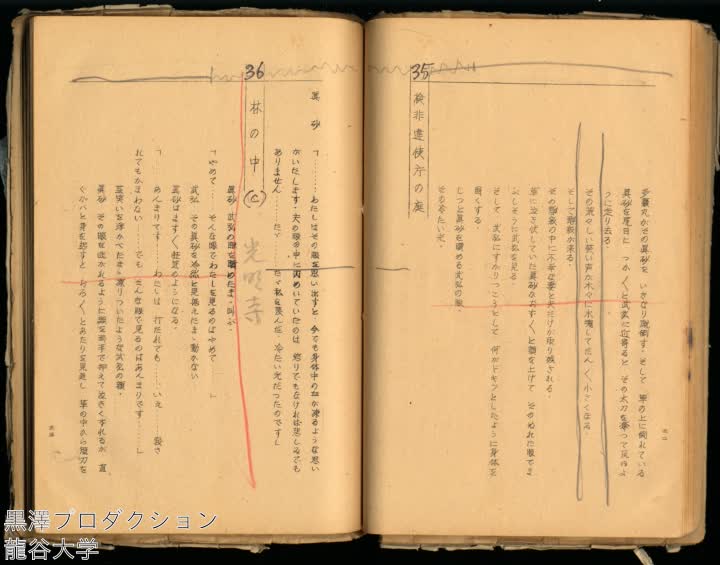 多襄丸がその眞砂を いきなり蹴倒す。そして 草の上に倒れている
眞砂を尻目に つか〱と武弘に近寄ると その太刀を奪って反
うに走り去る。
その荒々しい笑い声が木々に木魂してだん〱小さくなる。
そして 静寂が来る。
その静寂の中に不幸な妻と夫だけが取り残される。
草に泣き伏していた眞砂がおず〱と顔を上げて そのぬれた眼で
ふしそうに武弘を見る。
そして 武弘にすがりつこうとして 何かドキンとしたように身体を
硬くする。
じっと眞砂を瞶める武弘の眼。
その冷たい光。
35
檢非違使庁の庭
眞砂
「……わたしはその眼を思い出すと 今でも身体中の血が凍るような思い
がいたします。夫の眼の中に閃めいていたのは 怒りでもなければ悲しみでも
ありません……たゞ たゞ私を蔑んだ 冷たい光だったのです」
36
林の中 (C)
光明寺
眞砂 武弘の眼を瞶めたまゝ叫ぶ
「やめて…… そんな眼でわたしを見るのはやめて……」
武弘 その眞砂を冷然と見据えたまゝ動かない
眞砂はます〱狂氣のようになる。
「 あんまりです…… わたしは 打たれても……いえ…… 殺さ
れてもかまわない…… でも そんな眼で見るのはあんまりです……」
薄笑いを浮かべたまゝ凍りついたような武弘の顔。
眞砂 その眼を避かれるように顔を両手で抑えて泣きくずれるが 直
ぐガバと身を起すと おろ〱とあたりを見廻し 草の中から短刀を
黒澤プロダクション
龍谷大学